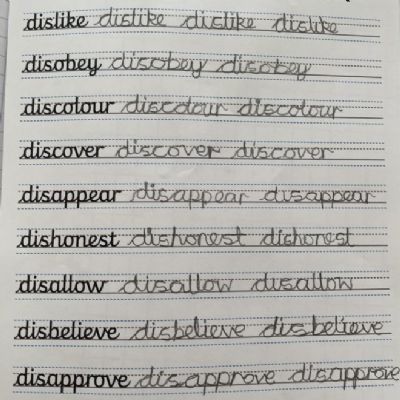 dislike dislike dislike dislike
disobey disobey disobey
discolour discolour discolour
discover discover discover
disappear disappear disappear
dishonest dishonest dishonest
disallow disallow disallow
disbelieve disbelieve disbelieve
disapprove disapprove disapprove